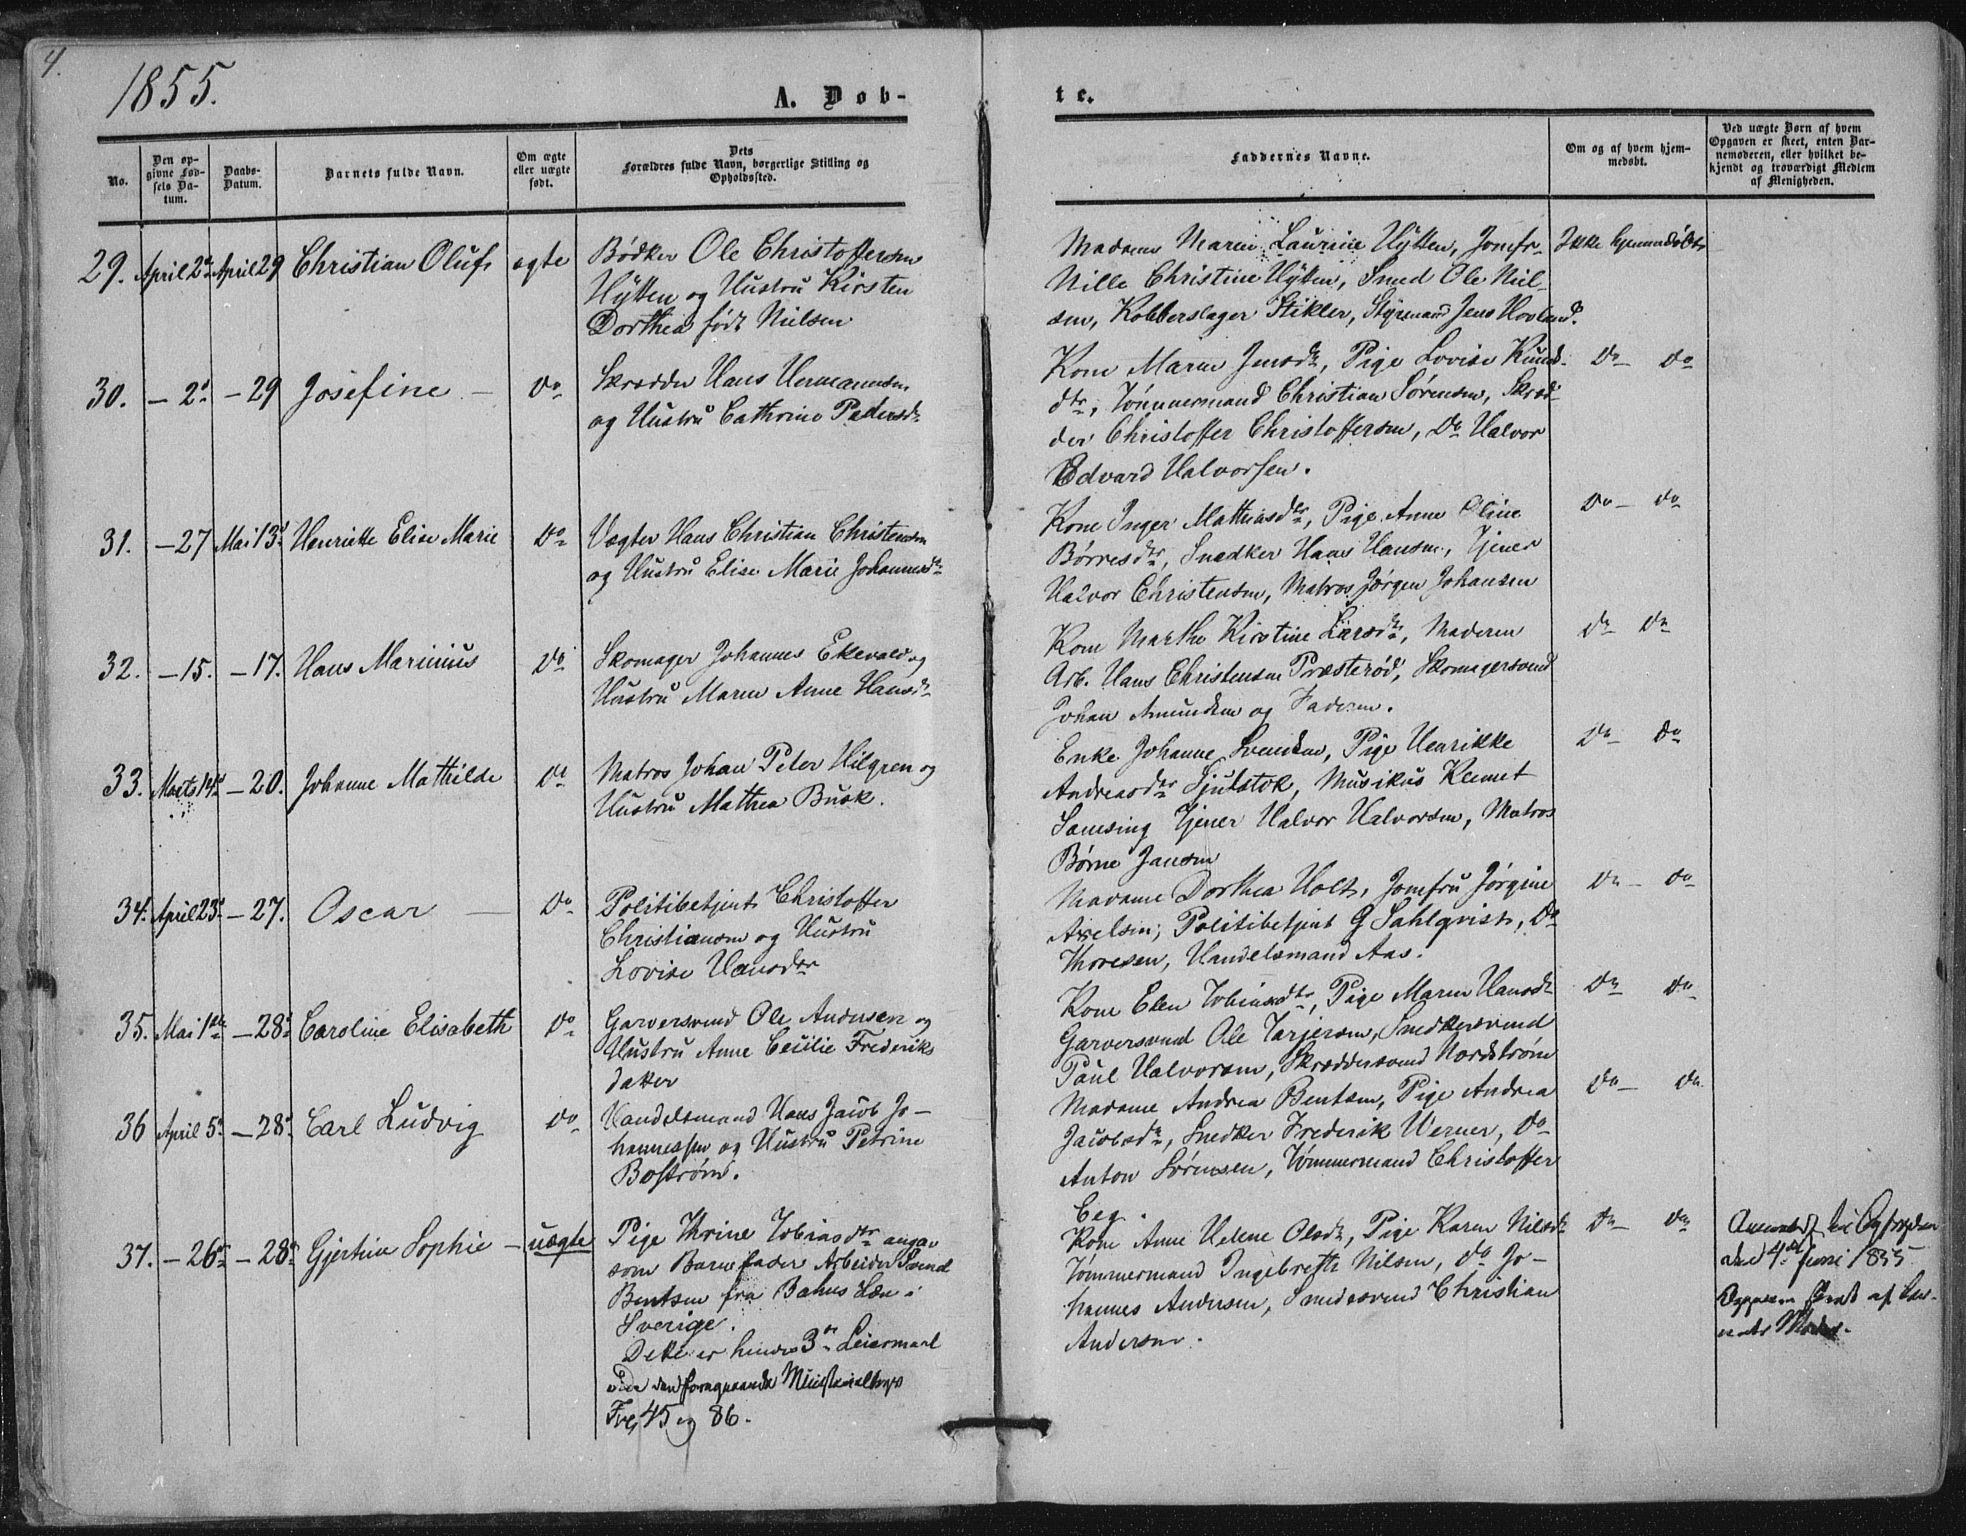 4.
1855.
A. Døb-
te.
No.
Den op-
givne Fød-
sels Da-
tum.
Daabs-
Datum.
Barnets fulde Navn.
Om ægte
eller uægte
født.
Dets
Forældres fulde Navn, borgerlige Stilling og
Opholdssted.
Faddernes Navne.
Om og af hvem hjem-
medøbt.
Ved uægte Børn af hvem
Opgaven er skeet, enten Bar-
nemoderen, eller hvilket be-
kjendt og troværdigt Medlem
af Menigheden.
29. April 2d April 29 Christian Olufs ægte
Bødker Ole Christoffersen
Hytten og Hustru Kirsten
Dorthea født Nielsen
Madame Maren Laurine Hytten, Jomfr
Nille Christine Hytten, Smed Ole Niel-
sen, Kobberslager Stikler, Styrmand Jens Hovland.
Ikke hjemmedøbt
30. - 2d - 29 Josefine - Do
Skrædder Hans Hermannsen
og Hustru Cathrine Pedersdr
Kone Maren Jensdr, Pige Lovise Knuds
dtr, Tømmermand Christian Sørensen, Skræd-
der Christoffer Christoffersen, Do Halvor
Edvard Halvorsen.
Do - Do
31. - 27 Mai 13d Henriette Elise Marie Do
Vægter Hans Christian Christensen
og Hustru Elise Marie Johannesdr
Kone Inger Mathiasdtr, Pige Anne Oline
Børresdtr, Snedker Hans Hansen, Tjener
Halvor Christensen, Matros Jørgen Johansen
Do - Do
32. - 15. - 17. Hans Marinius Do
Skomager Johannes Ekevald og
Hustru Maren Anne Hansdr
Kone Marthe Kirstine Larsdtr, Moderen
Arb. Hans Christensen Præsterød, Skomagersvend
Johan Amundsen og Faderen.
Do Do
33. Marts 14d - 20. Johanne Mathilde Do
Matros Johan Peter Hilgren og
Hustru Mathea Busk.
Enke Johanne Svendsen, Pige Henrikke
Andreasdtr Sjulstok, Musikus Klemet
Samsing Tjener Halvor Halvorsen, Matros
Børne Jansen
Do Do
34. April 23d - 27. Oscar - Do
Politibetjent Christoffer
Christiansen og Hustru
Lovise Hansdtr
Madame Dorthea Holt, Jomfru Jørgine
Axelsen, Politibetjent G Sahlqvist, Do
Thoresen, Handelsmand Aas.
Do - Do
35. Mai 1ste - 28d Caroline Elisabeth Do
Garversvend Ole Andersen og
Hustru Anne Cecilie Frederiks
datter
Kone Elen Tobiasdtr, Pige Maren Hansdr
Garversvend Ole Tarjersen, Snedkersvend
Paul Halvorsen, Skræddersvend Nordstrøm
Do Do
36 April 5d - 28d Carl Ludvig Do
Handelsmand Hans Jacob Jo-
hannessen og Hustru Petrine
Bostrøm.
Madame Andrea Bentsen, Pige Andrea
Jacobsdr, Snedker Frederik Werner, Do
Anton Sørensen, Tømmermand Christoffer
Eeg.
Do - Do
37. - 26de - 28d Gjertine Sophie - uægte
Pige Thrine Tobiasdtr angav
som Barnefader Arbeider Svend
Bentsen fra Bahus Læn i
Sverige.
Dette er hendes 3die Leiermaal
vide den foregaaende Ministerialbogs
45 og 86.
Kone Anne Helene Olsdr, Pige Karen Nilsdr
Tømmermand Ingebreth Nilsen, do Jo-
hannes Andersen, Smedesvend Christian
Andersen.
Do - Do
Anmeldt
den 4de Juni 1855
af Bar-
nets Moder.